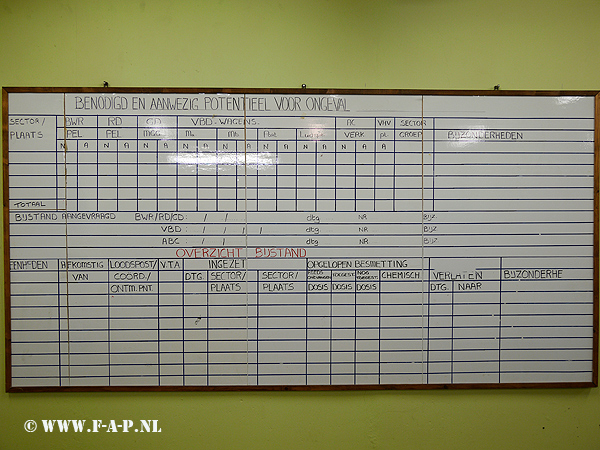 BENODIGD EN AANWEZIG POTENTIEEL VOOR ONGEVAL
SECTOR/ BWR RD GD VBD-WAGENS VHV SECTOR
PLAATS PEL PEL VERK pl. GROEP BIJZONDERHEDEN
N A N A N A N A N A N A N A N A
TOTAAL
BIJSTAND AANGEVRAAGD BWR/RD/GD: / / dtg NR BIJZ
VBD: / / / / dtg NR BIJZ
ABC: / / dtg NR BIJZ
OVERZICHT BIJSTAND
EENHEDEN AFKOMSTIG LOODSPOST/ V.T.A INGEZET OPGELOPEN BESMETTING
VAN COORD/ DTG. SECTOR/ SECTOR/ CHEMISCH VERLATEN BIJZONDERHE
ONTM.PNT. PLAATS PLAATS DOSIS DOSIS DOSIS DTG. NAAR
© WWW.F-A-P.NL